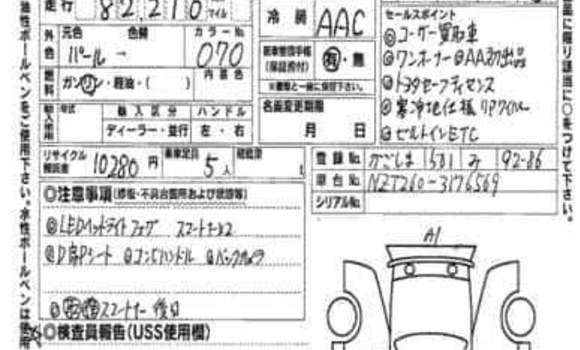 走行 82,210 マイル
冷房 AAC
セールスポイント
◎ユーザー買取車
◎ワンオーナー◎AA初出品
◎トヨタセーフティセンス
◎寒冷地仕様 リアワイパー
◎ビルトインETC
外色 元色 色替 カラーNo.
パール → 070
内装色
燃料 ガソリン・軽油・( )
新車整備手帳(保証書付) 有・無
名義変更期限
月 日
輸入使用 年式 輸入区分 ハンドル
ディーラー・並行 左・右
リサイクル預託金 10280円 乗車定員 5人 積載量 t
登録No. かごしま 581 み 92-86
車台No. NZT260-3176569
シリアルNo.
◎注意事項(修復・不具合箇所および状態等)
◎LEDヘッドライト フォグ スマートキーx2
◎D席Pシート ◎コンビハンドル ◎バックカメラ
スマートキー 後日
◎検査員報告(USS使用欄)
A1
油性ボールペンをご使用下さい。水性ボールペンは使用
に限り該当に○をつけて下さい。